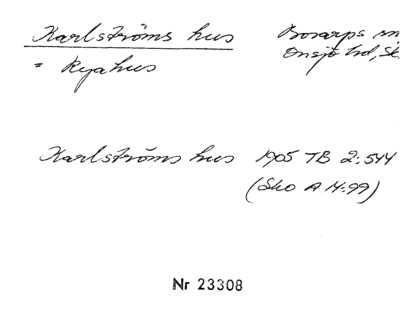 Karlströms hus Bosarps
= Ryahus Onsjö hd, Sk.
Karlströms hus 1905 TB 2:544
(Sko A 14:99)
Nr 23308